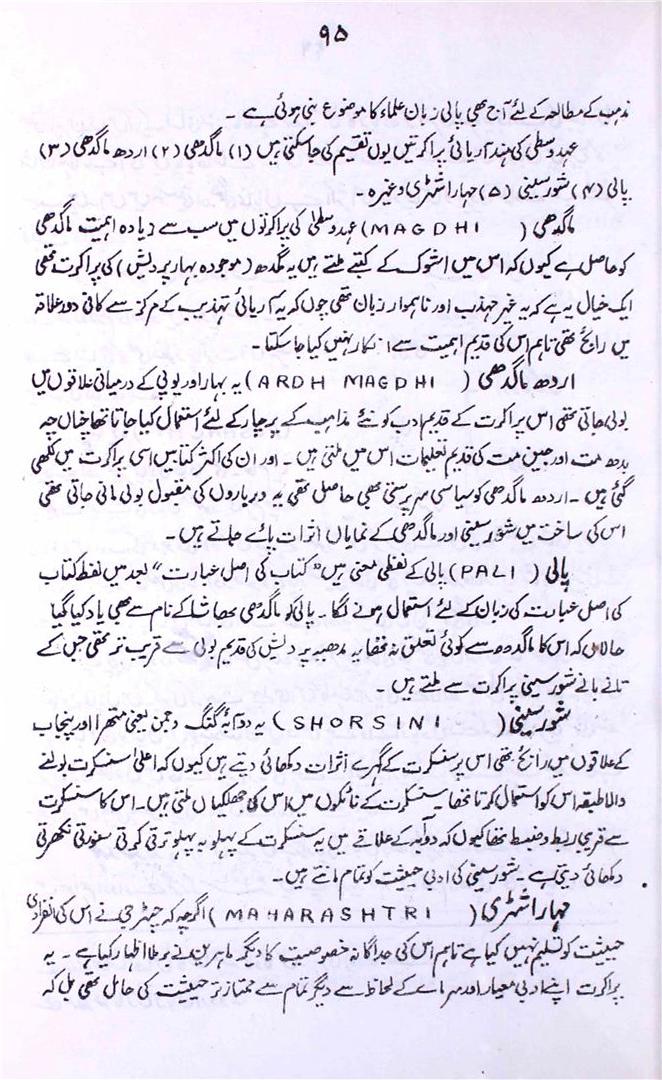 ۹۵
مذہب کے مطالعہ کے لئے آج بھی پالی زبان علماء کا موضوع بنی ہوئی ہے ۔
عہد وسطیٰ کی ہند آریائی پراکرتیں یوں تقسیم کی جا سکتی ہیں (۱) ماگدھی (۲) اردھ ماگدھی (۳)
پالی (۴) شورسینی (۵) مہاراشٹری وغیرہ ۔
ماگدھی ( MAGDHI ) عہد وسطیٰ کی پراکرتوں میں سب سے زیادہ اہمیت ماگدھی
کو حاصل ہے کیوں کہ اس میں اشوک کے کتبے ملتے ہیں یہ مگدھ (موجودہ بہار پردیش) کی پراکرت تھی
ایک خیال یہ ہے کہ یہ غیر مہذب اور ناہموار زبان تھی چوں کہ یہ آریائی تہذیب کے مرکز سے کافی دور علاقہ
میں رائج تھی تاہم اس کی قدیم اہمیت سے انکار نہیں کیا جا سکتا ۔
اردھ ماگدھی ( ARDH MAGDHI ) یہ بہار اور یوپی کے درمیانی علاقوں میں
بولی جاتی تھی اس پراکرت کے قدیم ادب کو نئے مذاہب کے پرچار کے لئے استعمال کیا جاتا تھا چناں چہ
بدھ مت اور جین مت کی قدیم تعلیمات اس میں ملتی ہیں ۔ اور ان کی اکثر کتابیں اسی پراکرت میں لکھی
گئی ہیں ۔ اردھ ماگدھی کو سیاسی سرپرستی بھی حاصل تھی یہ درباروں کی مقبول بولی مانی جاتی تھی
اس کی ساخت میں شورسینی اور ماگدھی کے نمایاں اثرات پائے جاتے ہیں ۔
پالی ( PALI ) پالی کے لفظی معنی ہیں "کتاب کی اصل عبارت" بعد میں لفظ کتاب
کی اصل عبارت کی زبان کے لئے استعمال ہونے لگا ۔ پالی کو ماگدھی بھاشا کے نام سے بھی یاد کیا گیا
حالاں کہ اس کا ماگدھ سے کوئی تعلق نہ تھا یہ مدھیہ پردیش کی قدیم بولی سے قریب تر تھی جس کے
تانے بانے شورسینی پراکرت سے ملتے ہیں ۔
شورسینی ( SHORSINI ) یہ دوآبہ گنگ و جمن یعنی متھرا اور پنجاب
کے علاقوں میں رائج تھی اس پر سنسکرت کے گہرے اثرات دکھائی دیتے ہیں کیوں کہ اعلیٰ سنسکرت بولنے
والا طبقہ اس کو استعمال کرتا تھا ۔ سنسکرت کے ناٹکوں میں اس کی جھلکیاں ملتی ہیں ۔ اس کا سنسکرت
سے قریبی ربط و ضبط تھا کیوں کہ دوآبہ کے علاقے میں یہ سنسکرت کے پہلو بہ پہلو ترقی کرتی سنورتی نکھرتی
دکھائی دیتی ہے ۔ شورسینی کی ادبی حیثیت کو تمام مانتے ہیں ۔
مہاراشٹری ( MAHARASHTRI ) اگرچہ کہ چٹرجی نے اس کی انفرادی
حیثیت کو تسلیم نہیں کیا ہے تاہم اس کی جداگانہ خصوصیت کا دیگر ماہرین نے برملا اظہار کیا ہے ۔ یہ
پراکرت اپنے ادبی معیار اور سرمائے کے لحاظ سے دیگر تمام سے ممتاز تر حیثیت کی حامل تھی بل کہ